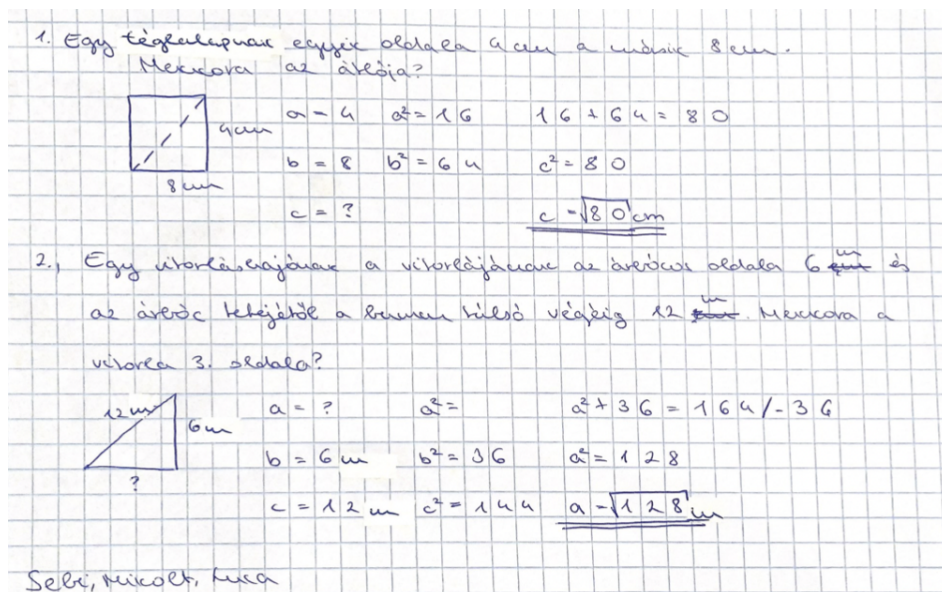 1. Egy téglalapnak egyik oldala 4 cm a másik 8 cm.
Mekkora az átlója?
4cm
8cm
a = 4 a² = 16 16 + 64 = 80
b = 8 b² = 64 c² = 80
c = ? c = √80 cm
2., Egy vitorláshajónak a vitorlájának az árbócos oldala 6 m és
az árbóc tetejétől a bumm túlsó végéig 12 m. Mekkora a
vitorla 3. oldala?
12m
6m
?
a = ? a² = a² + 36 = 164 /-36
b = 6 m b² = 36 a² = 128
c = 12 m c² = 144 a = √128 m
Sebi, Mikolt, Luca